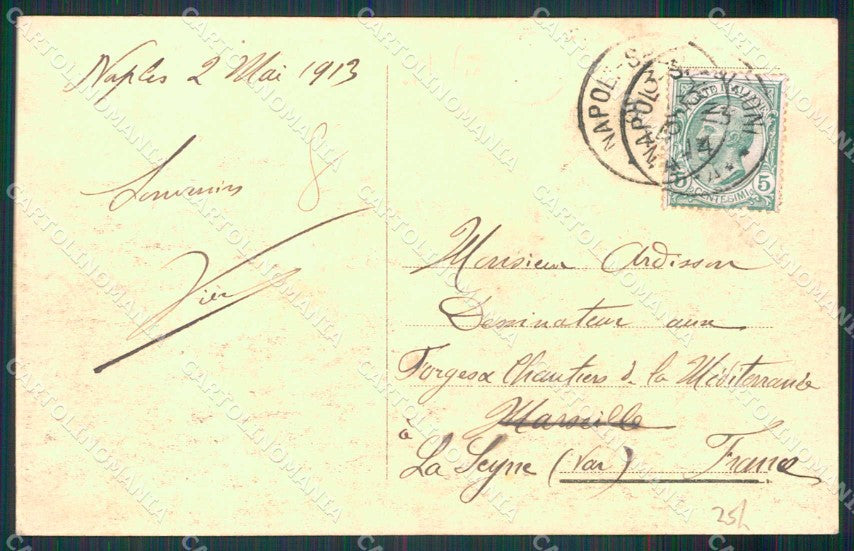 Naples 2 Mai 1913
8
Souvenirs
NAPOLI
NAPOLI
5 CENTESIMI 5
Monsieur Ardisson
Dessinateur aux
Forges & Chantiers de la Méditerranée
Marseille
à
La Seyne (Var) France
25h
CARTOLINOMANIA